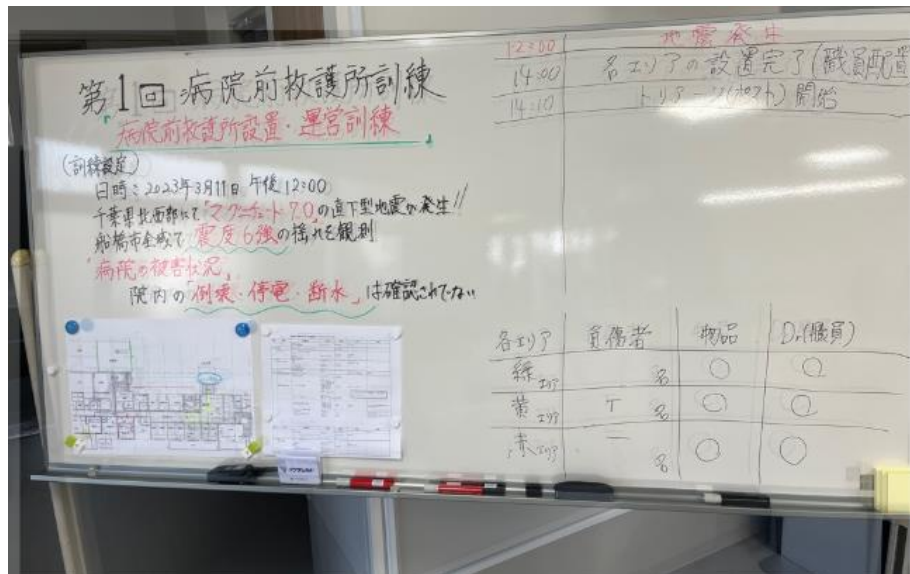 第1回 病院前救護所訓練
病院前救護所設置・運営訓練
(訓練設定)
日時:2023年3月11日 午後12:00
千葉県北西部にて「マグニチュード7.0」の直下型地震が発生!!
船橋市全域で震度6強の揺れを観測
「病院の被害状況」
院内の「倒壊・停電・断水」は確認されてない
12:00 地震発生
14:00 各エリアの設置完了(職員配置
14:10 トリアージ(ポスト)開始
各エリア 負傷者 物品 Dr(職員)
緑エリア 名 ○ ○
黄エリア T 名 ○ ○
赤エリア 一 名 ○ ○